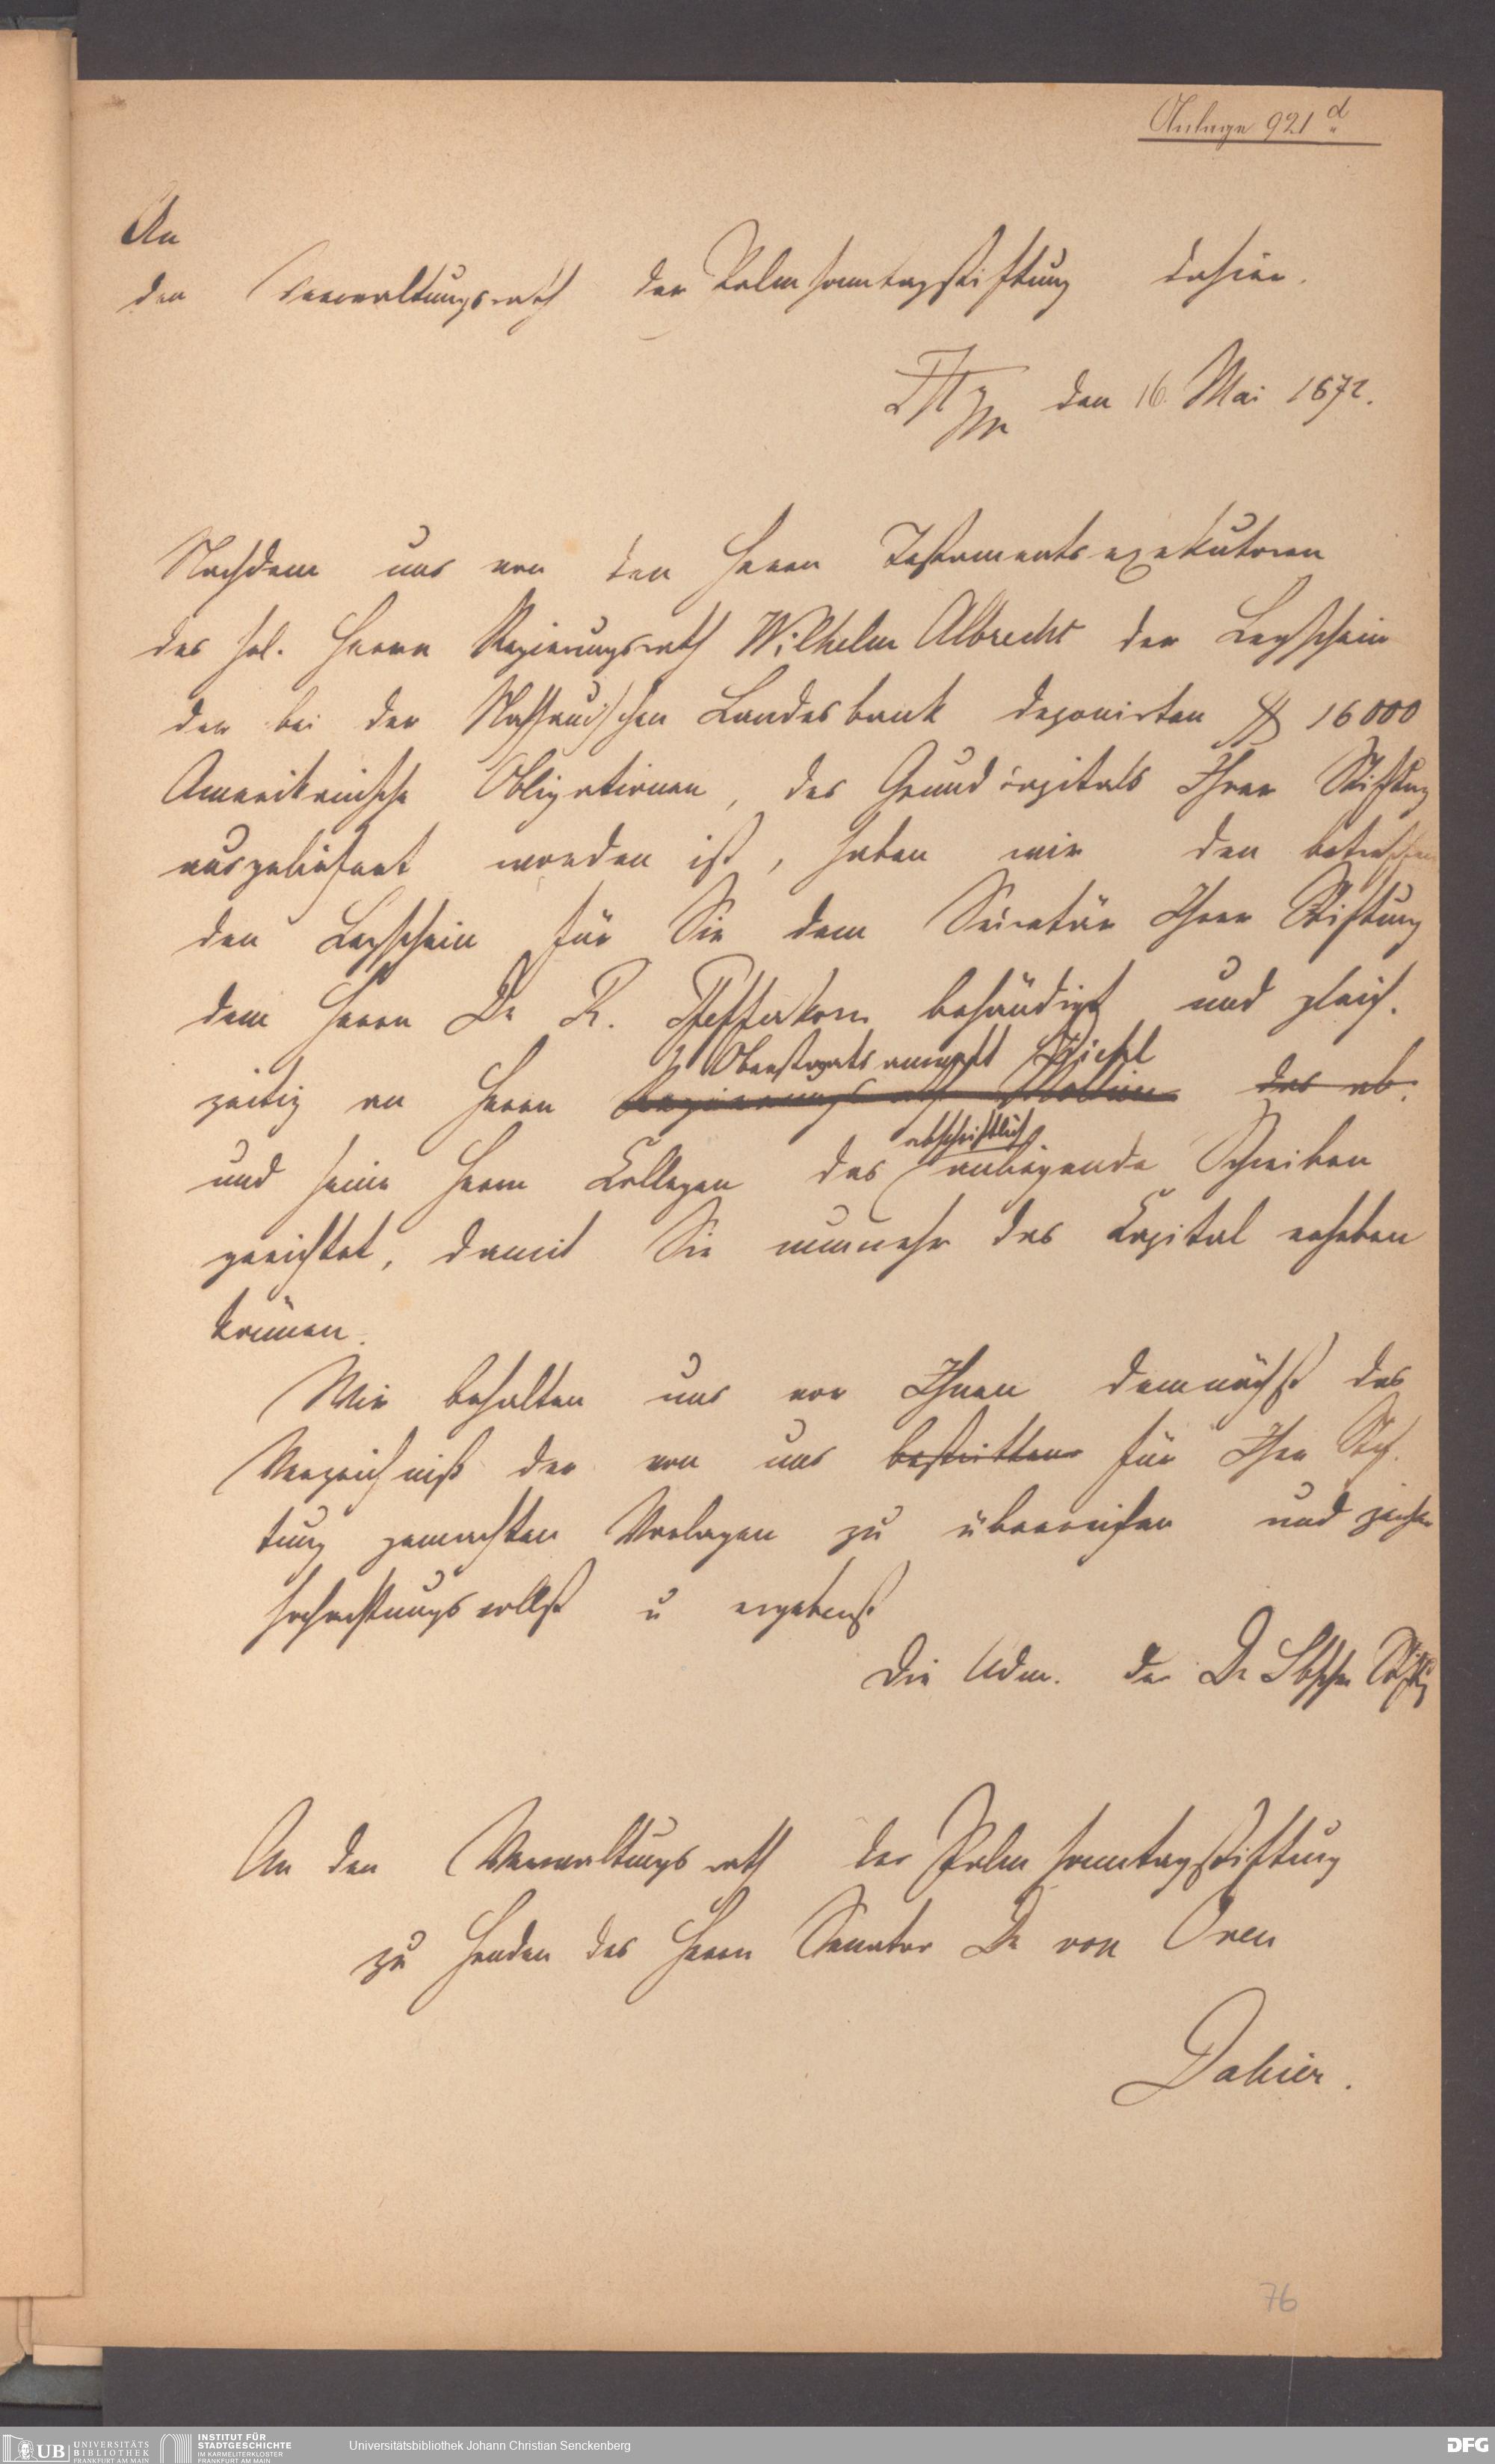 Anlage 921 d
An
den Verwaltungsrath der Palmsonntagstiftung dahier.
den 16. Mai 1872.
Nachdem uns von den Herrn Testamentsexekutoren
des sel. Herrn Regierungsrath Wilhelm Albrecht der Legschein
der bei der Nassauischen Landesbank deponirten $ 16000
Amerikanische Obligationen, des Grundcapitals Ihrer Stiftung
ausgeliefert worden ist, haben wir den betreffen
den Legschein für Sie dem Secretär Ihrer Stiftung
dem Herrn Dr R. Pfefferkorn behändigt und gleich-
Oberstaatsanwalt
zeitig an Herrn das ab-
abschriftlich
und seine Herrn Collegen das anliegende Schreiben
gerichtet, damit Sie nunmehr das Capital erheben
können.
Wir behalten uns vor Ihnen demnächst das
Verzeichniß der von uns bestrittenen für Ihre Stif-
tung gemachten Vorlagen zu überreichen und zeichnen
hochachtungsvollst u ergebenst
Die Adm. der Dr Sbschen Stiftg
An den Verwaltungsrath der Palmsonntagstiftung
zu Handen des Herrn Senator Dr von Oven
Dahier.
76
UB UNIVERSITÄTS
BIBLIOTHEK
FRANKFURT AM MAIN
INSTITUT FÜR
STADTGESCHICHTE
IM KARMELITERKLOSTER
FRANKFURT AM MAIN
Universitätsbibliothek Johann Christian Senckenberg
DFG